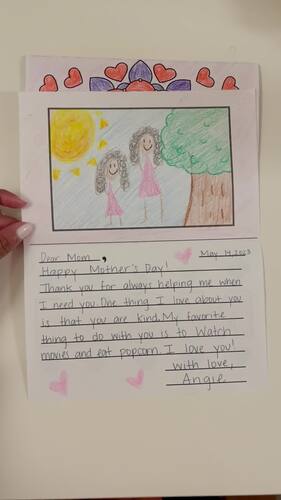 Dear Mom, May 14, 2023
Happy Mother's Day!
Thank you for always helping me when
I need you. One thing I love about you
is that you are kind. My favorite
thing to do with you is to Watch
movies and eat popcorn. I love you!
with love,
Angie